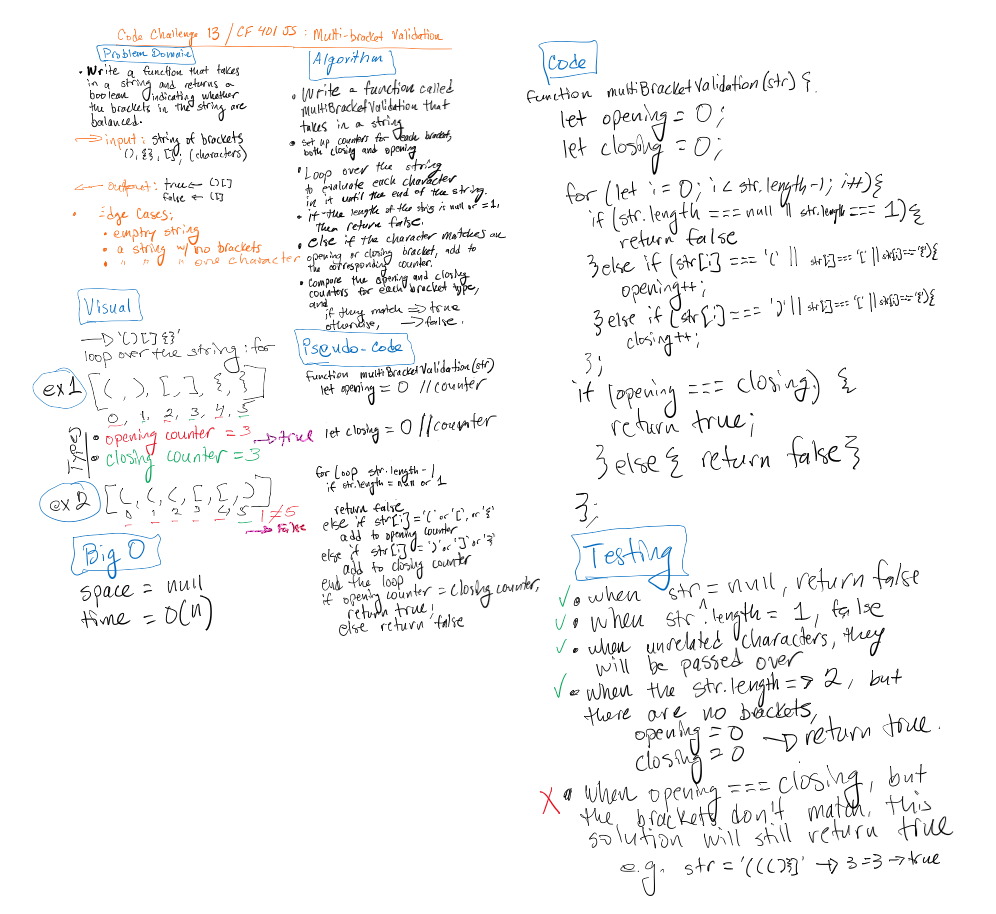 Code Challenge 13 / CF 401 JS : Multi-bracket Validation
Problem Domain
• Write a function that takes
in a string and returns a
boolean indicating whether
the brackets in the string are
balanced.
→ input: string of brackets
(), {}, [], (characters)
← output: true ← ()[]
false ← ([]
• Edge Cases:
• empty string
• a string w/ no brackets
• " " " one character
Visual
→ '()[]{}'
loop over the string: for
ex1 [(, ), [, ], {, }]
0, 1, 2, 3, 4, 5
TYPES
• opening counter = 3
→ true
• closing counter = 3
ex2 [(, (, (, [, [, )]
0 1 2 3 4 5 1≠5
→ false
Big O
space = null
time = O(n)
Algorithm
• Write a function called
multiBracketValidation that
takes in a string
• set up counters for each bracket,
both closing and opening
• Loop over the string
to evaluate each character
in it until the end of the string.
• if the length of the string is null or =1,
then return false.
• else if the character matches an
opening or closing bracket, add to
the corresponding counter.
• Compare the opening and closing
counters for each bracket type,
and
if they match → true
otherwise, → false.
Pseudo-code
function multiBracketValidation(str)
let opening = 0 //counter
let closing = 0 //counter
for loop str.length-1
if str.length = null or 1
return false
else if str[i] = '(' or '[', or '{'
add to opening counter
else if str[i] = ')' or ']' or '}'
add to closing counter
end the loop
if opening counter = closing counter,
return true;
else return false
Code
function multiBracketValidation(str) {
let opening = 0;
let closing = 0;
for (let i = 0; i < str.length-1; i++){
if (str.length === null || str.length === 1){
return false
} else if (str[i] === '(' || str[i] === '[' || str[i] === '{'){
opening++;
} else if (str[i] === ')' || str[i] === ']' || str[i] === '}'){
closing++;
};
if (opening === closing) {
return true;
} else { return false}
};
Testing
✓ • when str = null, return false
✓ • when str.length = 1, false
✓ • when unrelated characters, they
will be passed over
✓ • when the str.length => 2, but
there are no brackets,
opening = 0
→ return true.
closing = 0
X • when opening === closing, but
the brackets don't match, this
solution will still return true
e.g. str = '((()}]' → 3=3 → true